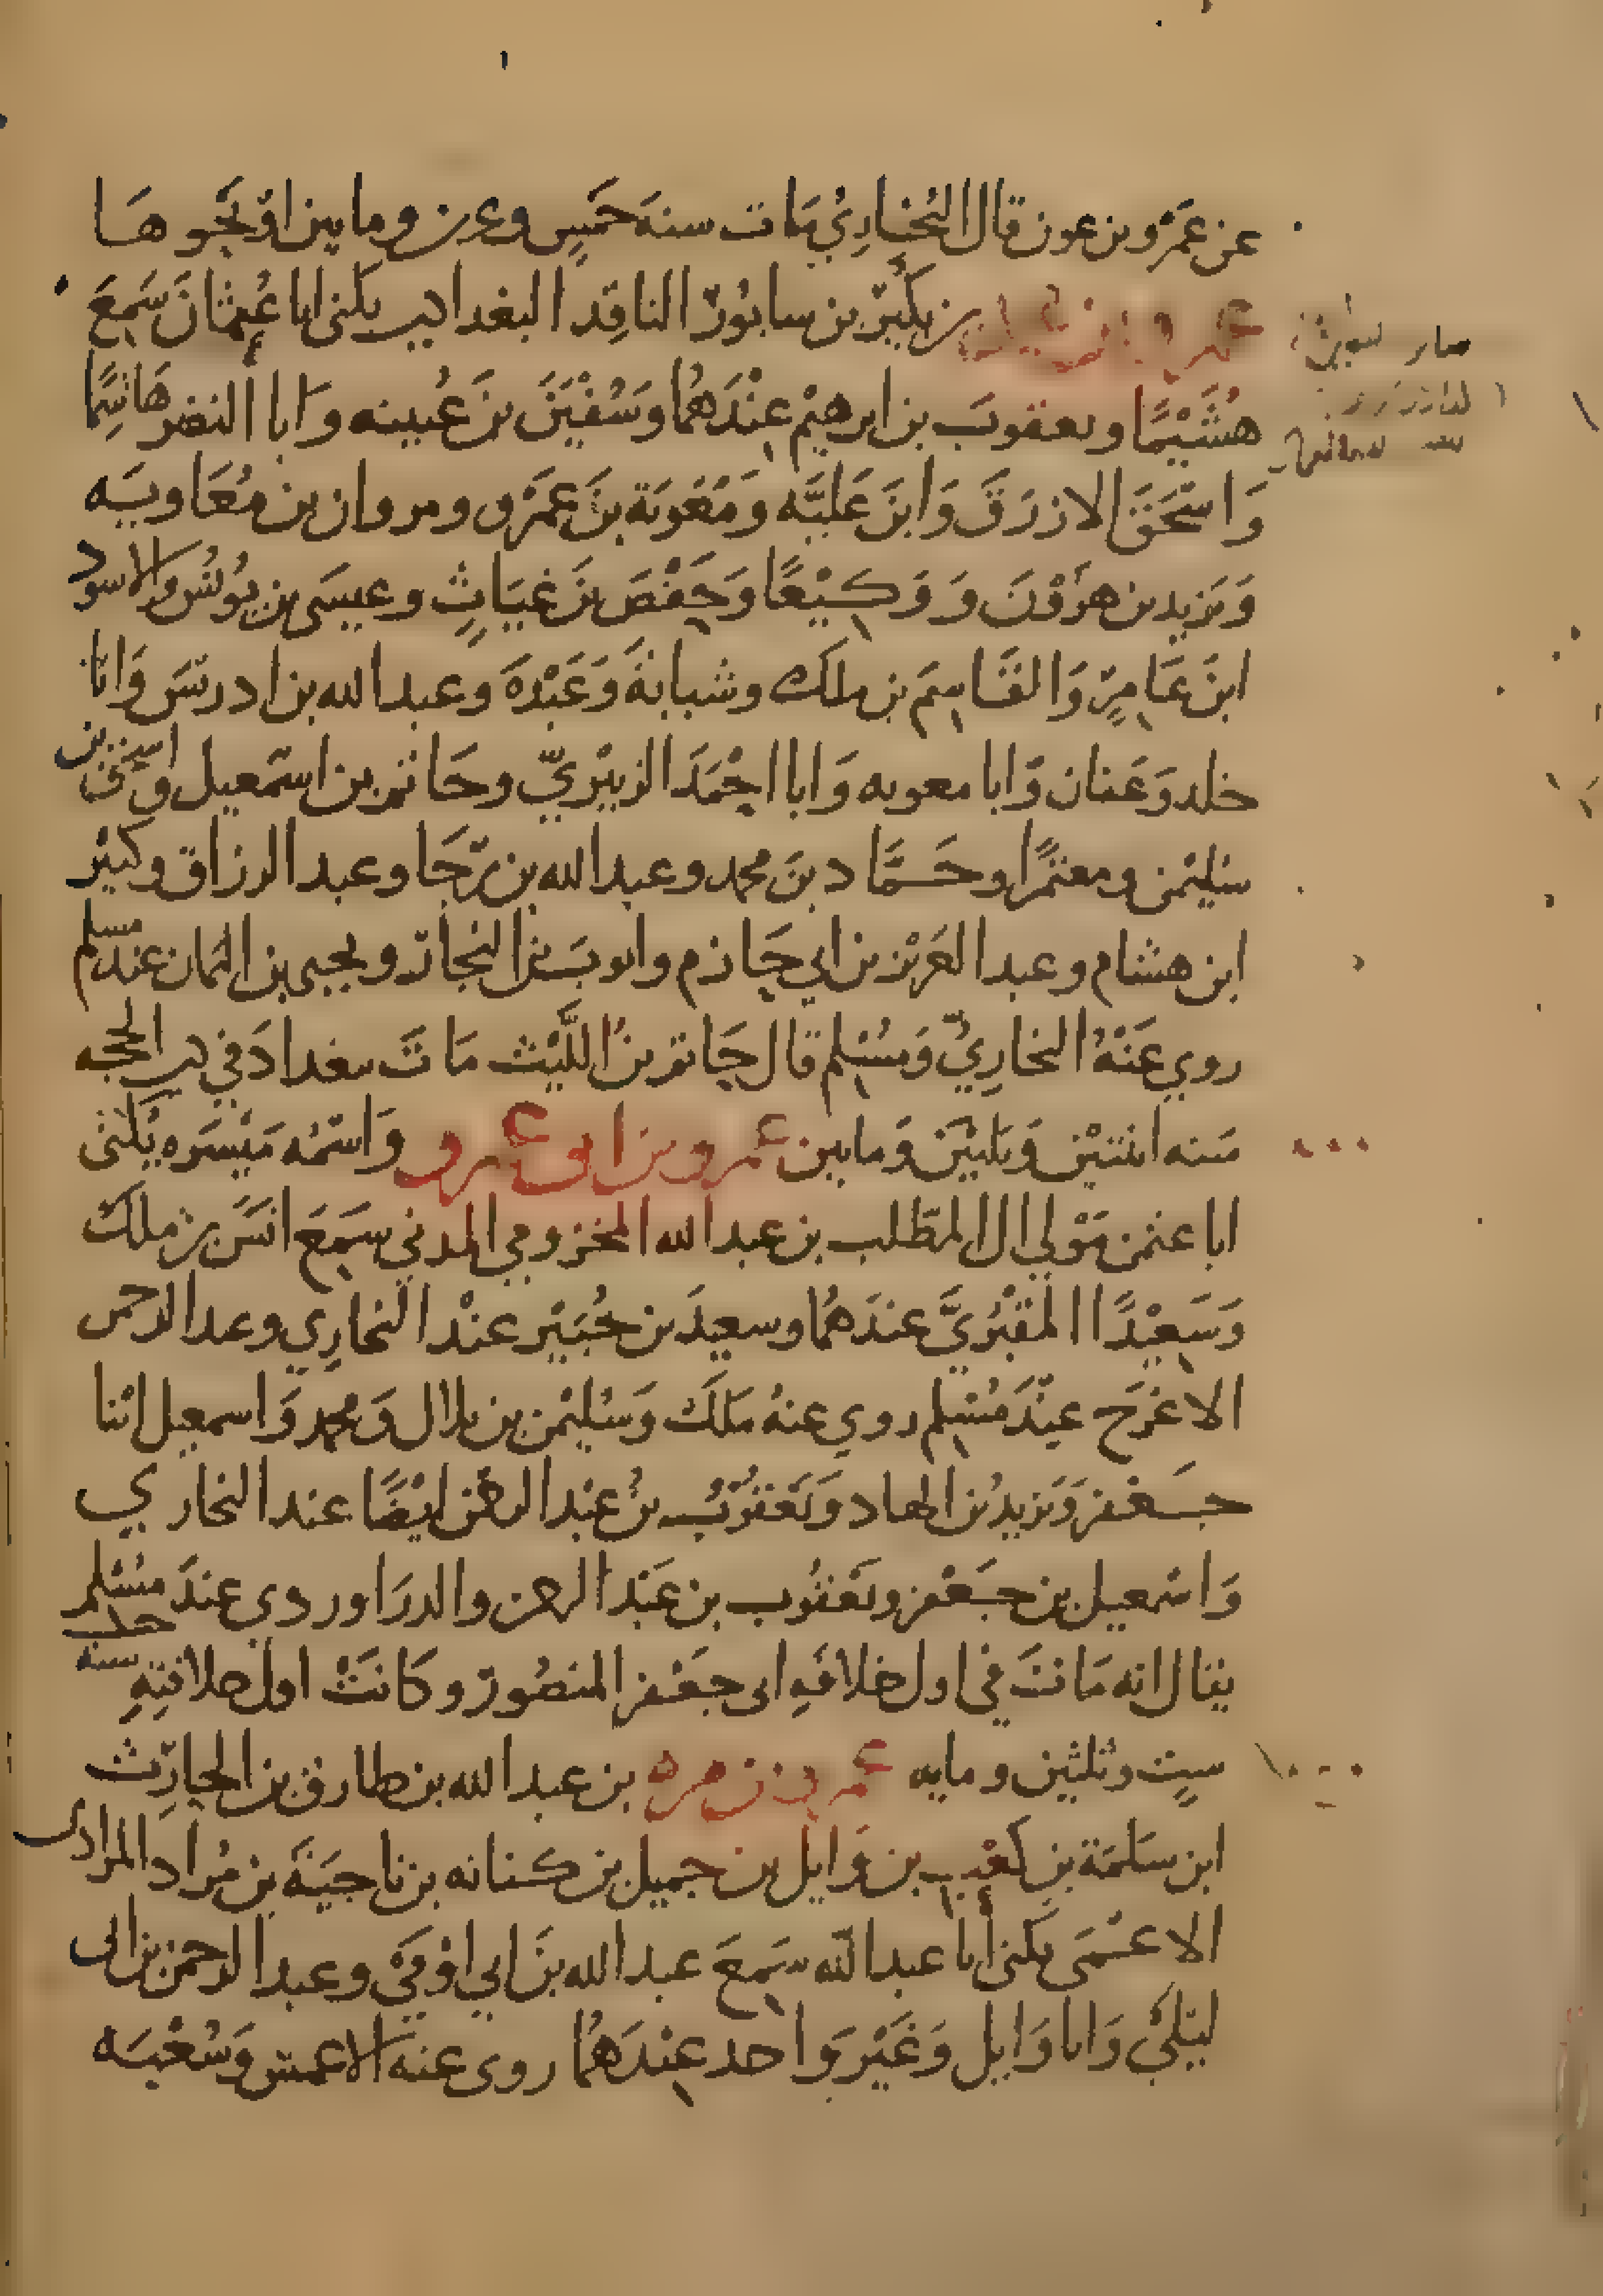 عن عَمْرو بن عون قال البُخَارِيُ مَات سنه خمسٍ وعرىن ومايىن اوْ نَحْوهَا
عمرو بن محمد بن بُكَيْرٍ بن سابُورٍ الناقِد البغدادي يكنى ابا عُثمانَ سَمِعَ
هُشَيْمًا ويعقوبَ بن ابرهيْم عِنْدَهُمَا وسُفْيَنَ بنَ عُيينه وَابا النضر هَاشِمًا
وَاسْحَقَ الازرَقَ وَابنَ عُليَّه وَمَعٰوِيَةَ بنَ عَمْرٍو ومروان بن مُعَاويَه
وَيَزيد بن هرُوْنَ وَوَكِيْعًا وَحَفْصَ بنَ غِيَاثٍ وعيسَى بن يُونُسَ والاسود
ابنَ عَامِرٍ وَالقَاسِمَ بن ملك وشبابةَ وَعَبْدَةَ وعبد الله بن ادريسَ وَابَا
خلد وَعَفان وَابا معويه وَابا احْمَدَ الزبيْريّ وحَاتم بن اسْمعيل واسحق بن
سُليمْن ومعتمرًا وحَمَّاد بنَ محمد وعبد الله بن رَجَا وعبد الرزاق وكثيْر
ابن هشام وعبد العَزيْز بن ابي حَازم وايوبَ بنَ النجارْ ويحيى بن اليَمان عند مسلم
روي عَنْهُ البخارِيُّ وَمُسْلِم قال حَاتم بنُ اللَّيْث مَاتَ ببغدادَ في ذي الحجه
سَنه اثنتيْن وَثلثيْن وَمايىن عمرو بن ابي عمرو وَاسْمُه مَيْسَره يُكْنَى
ابا عثمٰن مَوْلي ال المطّلب بن عبد الله المخزومي المدني سَمِعَ انَسَ بن ملك
وَسَعِيْدًا المَقْبُرِيَّ عندَهُمَا وسعيدَ بن جُبَيْر عنْد البُخارِي وعبد الرحمن
الاعْرَج عِنْدَ مُسْلِم روي عنهُ مَلك وَسُليْمٰن بن بلال وَمحمد وَاسمعيل ابْنا
جَعْفر وَيَزيدُ بن الهاد وَيَعْقُوْبُ بنُ عَبْد الرحمٰن ايْضًا عند البخاري
وَاسْمعيل بن جَعْفر ويَعْقُوب بن عَبْد الرحمن والدرَاوردي عندَ مُسْلم
يقال انه مَاتَ في اول خلافَةِ ابى جَعْفر المنصُورْ وكَانَتْ اول خلافتِهِ سنه
سِتٍ وثلثين ومايه عمرو بن مره بن عبد الله بن طارق بن الحارِث
ابن سَلمَة بن كعْب بن وَايل بن جميل بن كنانه بن ناجيَةَ بن مُراد المرادي
الاعْمَى يكنى أبا عبد اللّه سَمِعَ عبد الله بنَ ابي اوْفَي وعبد الرحمن بن ابى
ليْلَيْ وَابا وَايل وَغَيْر وَاحد عِنْدَهُمَا روى عنه الاعمش وَشُعْبَه